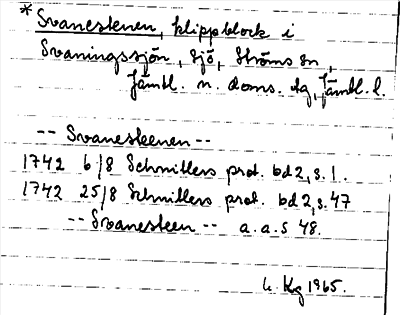 * Svanestenen, klippblock i
Svaningssjön, sjö, Ströms sn,
Jämtl. n. doms. dg, Jämtl. l.
-- Svanesteenen --
1742 6/8 Schnitlers prot. bd 2, s. 1.
1742 25/8 Schnitlers prot. bd 2, s. 47
-- Svanesteen -- a. a. s 48.
Kg 1965.